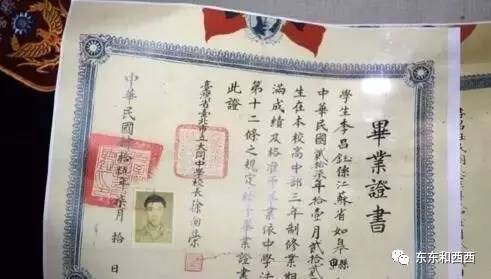 畢業證書
學生李昌鈺係江蘇省如皋縣
中華民國貳拾柒年拾壹月貳拾
生在本校高中部三年制修業期
滿成績及格准予畢業依中學法
第十二條之規定給予畢業證書
此證
臺灣省臺北市立大同中學校長 徐
中華民國 拾伍年柒月拾日
东东和西西